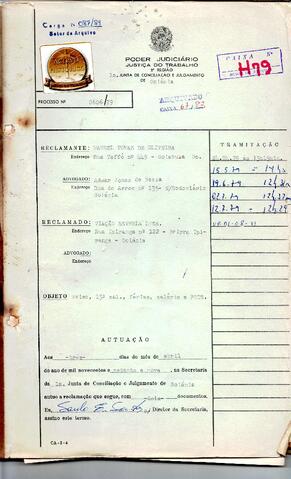 Carga Nº 087/89
Setor de Arquivo
PODER JUDICIÁRIO
JUSTIÇA DO TRABALHO
3ª REGIÃO
1a. JUNTA DE CONCILIAÇÃO E JULGAMENTO
DE Goiânia
CAIXA Nº
H79
PROCESSO Nº 0606/79
ARQUIVADO
CAIXA
RECLAMANTE: MANOEL TOMAZ DE OLIVEIRA
Endereço Rua Teffé nº 449 - Goiânia Go.
ADVOGADO:
Endereço
Goiânia
RECLAMADO: VIAÇÃO LTDA.
Endereço Rua Ipiranga nº 122 - Bairro Ipi-
ranga - Goiânia
ADVOGADO:
Endereço
OBJETO Aviso, 13º sal., férias, salário e FGTS.
TRAMITAÇÃO
15.5.79
19.6.79
12.7.79
AUTUAÇÃO
Aos -três- dias do mês de abril
do ano de mil novecentos e setenta e nove, na Secretaria
da 1a. Junta de Conciliação e Julgamento de Goiânia
autuo a reclamação que segue, com -dois- documentos.
Eu, Diretor da Secretaria,
assino este termo.
CA-I-4